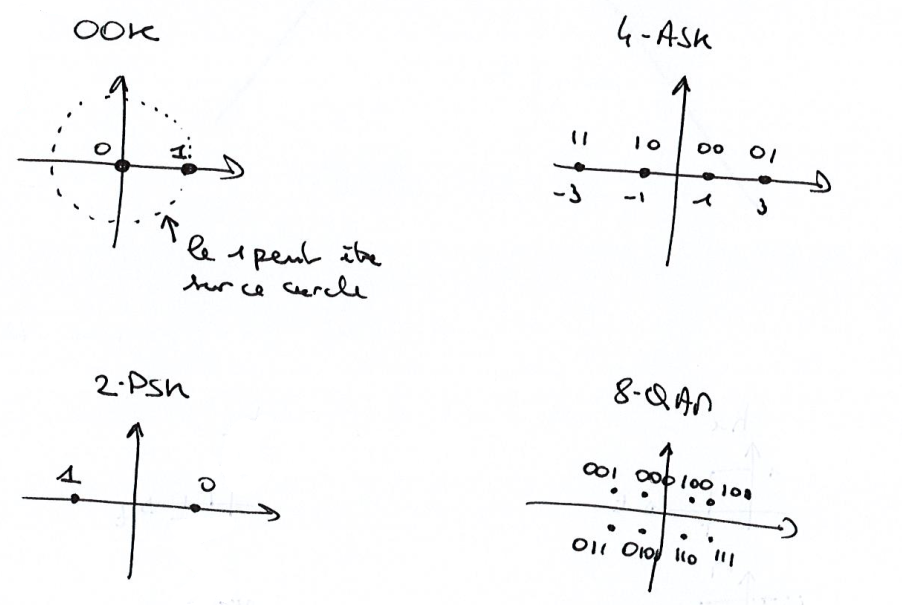 OOK
0 1
le 1 peut être
sur ce cercle
4-ASK
11 10 00 01
-3 -1 1 3
2-PSK
1 0
8-QAM
001 000 100 101
011 010 110 111